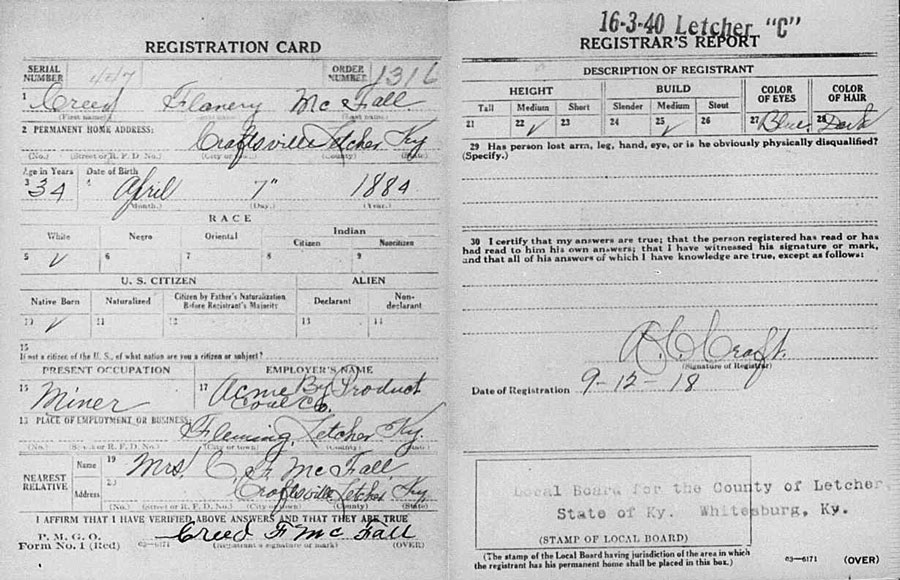 REGISTRATION CARD
SERIAL NUMBER
ORDER NUMBER 1316
1 Creed Flanery Mc Fall
(First name) (Last name)
2 PERMANENT HOME ADDRESS:
Craftsville Letcher Ky
(No.) (Street or R. F. D. No.) (City or town) (County) (State)
Age in Years Date of Birth
3 34 4 April 7" 1884
(Month.) (Day.) (Year.)
RACE
White Negro Oriental Indian
Citizen Noncitizen
5 ✓ 6 7 8 9
U. S. CITIZEN ALIEN
Native Born Naturalized Citizen by Father's Naturalization Before Registrant's Majority Declarant Non-declarant
10 ✓ 11 12 13 14
15
If not a citizen of the U. S., of what nation are you a citizen or subject?
PRESENT OCCUPATION EMPLOYER'S NAME
16 Miner 17 Acme By Product
Coal Co.
18 PLACE OF EMPLOYMENT OR BUSINESS:
Fleming, Letcher Ky.
(No.) (Street or R. F. D. No.) (City or town) (County) (State)
NEAREST RELATIVE
Name 19 Mrs. C. F. McFall
Address 20 Craftsville Letcher Ky.
(No.) (Street or R. F. D. No.) (City or town) (County) (State)
I AFFIRM THAT I HAVE VERIFIED ABOVE ANSWERS AND THAT THEY ARE TRUE
P. M. G. O.
Form No. 1 (Red) 03—6171 Creed F Mc Fall
(Registrant's signature or mark) (OVER)
16-3-40 Letcher "C"
REGISTRAR'S REPORT
DESCRIPTION OF REGISTRANT
HEIGHT BUILD COLOR OF EYES COLOR OF HAIR
Tall Medium Short Slender Medium Stout
21 22 ✓ 23 24 25 ✓ 26 27 Blue 28 Dark
29 Has person lost arm, leg, hand, eye, or is he obviously physically disqualified?
(Specify.)
30 I certify that my answers are true; that the person registered has read or has
had read to him his own answers; that I have witnessed his signature or mark,
and that all of his answers of which I have knowledge are true, except as follows:
R. C. Craft
(Signature of Registrar)
Date of Registration 9-12-18
Local Board for the County of Letcher,
State of Ky. Whitesburg, Ky.
(STAMP OF LOCAL BOARD)
(The stamp of the Local Board having jurisdiction of the area in which
the registrant has his permanent home shall be placed in this box.)
03—6171 (OVER)